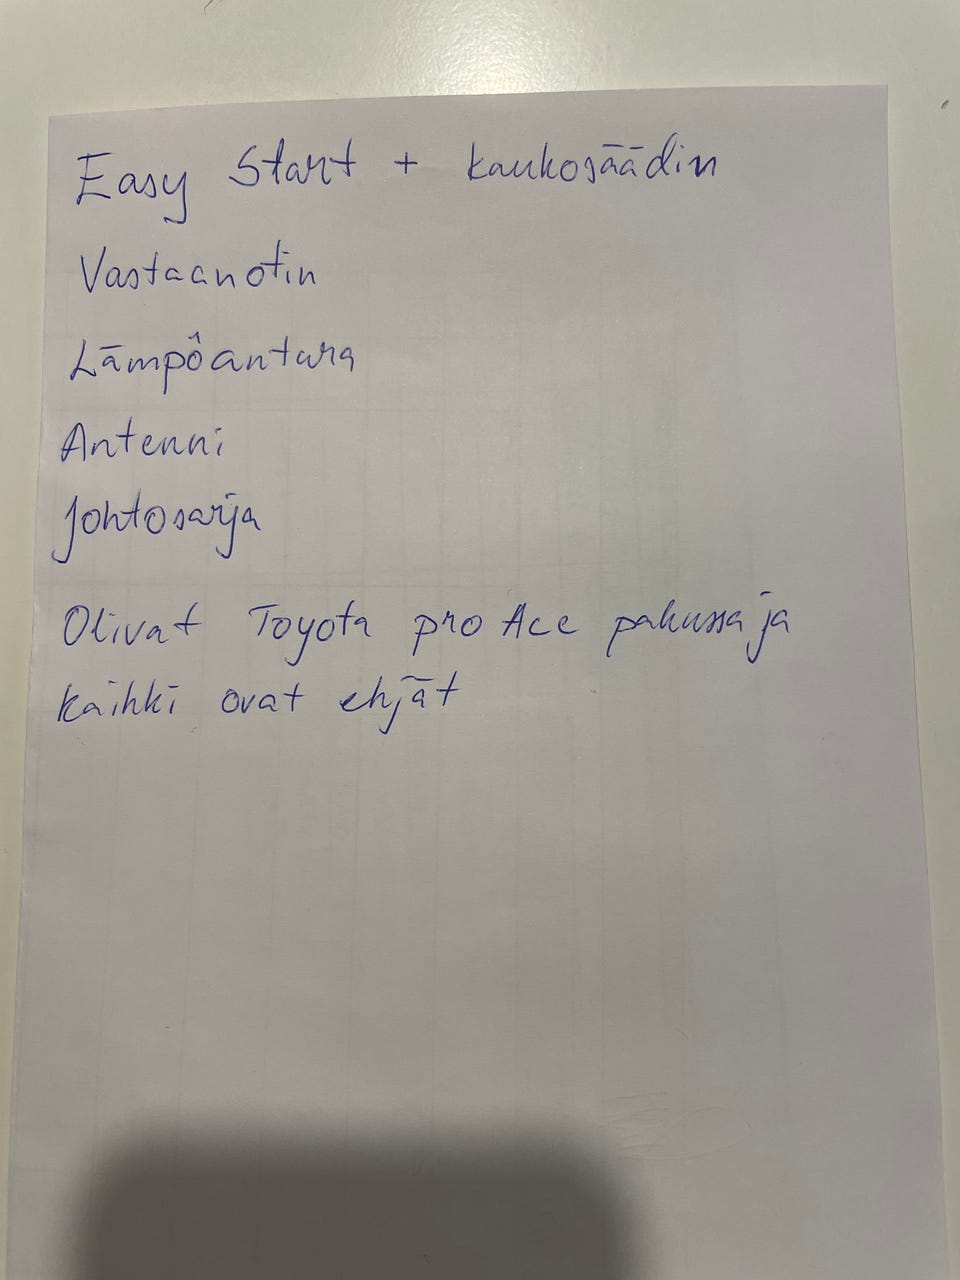 Easy Start + kaukosäädin
Vastaanotin
Lämpöantura
Antenni
Johtosarja
Olivat Toyota pro Ace pakussa ja
kaihki ovat ehjät